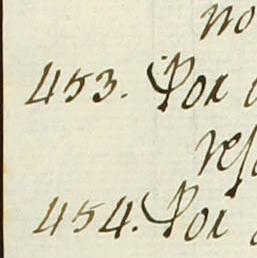 no
453. Por
res
454. Por